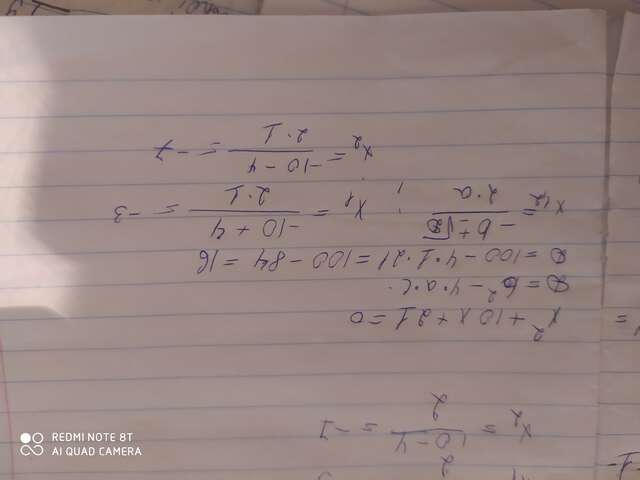 x₂ = (10 - 4)/2 = -7
x² + 10x + 21 = 0
D = b² - 4·a·c.
D = 100 - 4·1·21 = 100 - 84 = 16
x₁,₂ = (-b ± √D)/(2·a) ; x₁ = (-10 + 4)/(2·1) = -3
x₂ = (-10 - 4)/(2·1) = -7
REDMI NOTE 8T
AI QUAD CAMERA